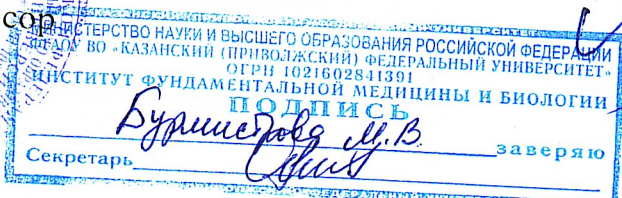 сор
МИНИСТЕРСТВО НАУКИ И ВЫСШЕГО ОБРАЗОВАНИЯ РОССИЙСКОЙ ФЕДЕРАЦИИ
ФГАОУ ВО «КАЗАНСКИЙ (ПРИВОЛЖСКИЙ) ФЕДЕРАЛЬНЫЙ УНИВЕРСИТЕТ»
ОГРН 1021602841391
ИНСТИТУТ ФУНДАМЕНТАЛЬНОЙ МЕДИЦИНЫ И БИОЛОГИИ
ПОДПИСЬ
Бурмистрова М.В.
заверяю
Секретарь